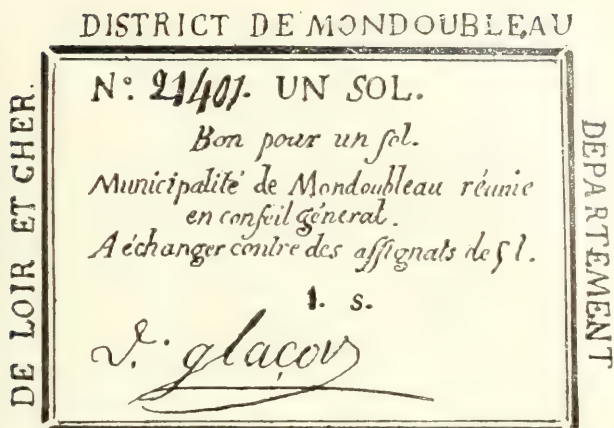 DISTRICT DE MONDOUBLEAU
DEPARTEMENT
DE LOIR ET CHER.
N°. 21401. UN SOL.
Bon pour un ſol.
Municipalité de Mondoubleau réunie
en conſeil géneral.
A échanger contre des aſſignats de 5 l.
1. s.
glaçon